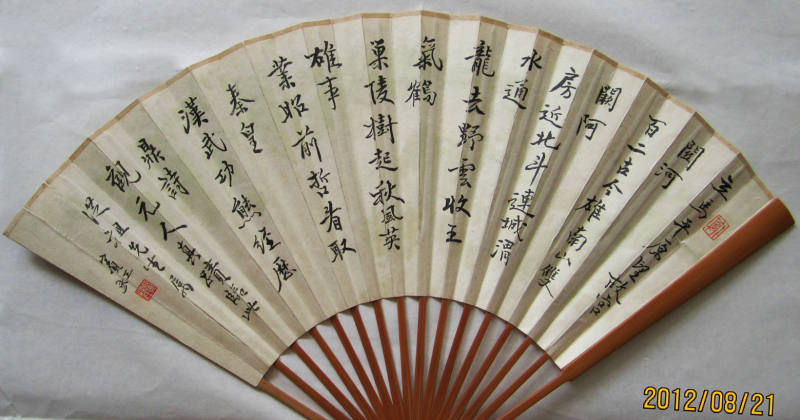 立馬平原望故宮
關河
百二古今雄南山雙
闕阿
房近北斗連城渭
水通
龍去野雲收王
氣鶴
巢陵樹起秋風英
雄事
業昭前哲看取
秦皇
漢武功熊經歷
鼎詩
觀元人真蹟臨此
祖先生屬
2012/08/21